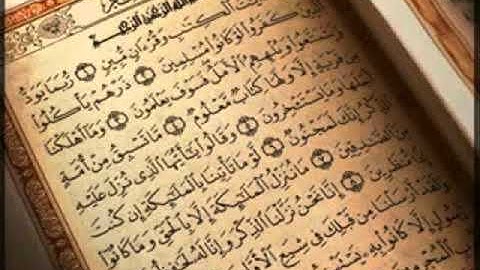 بِسْمِ اللَّهِ الرَّحْمَٰنِ الرَّحِيمِ
الْكِتَٰبِ وَقُرْءَانٍ مُّبِينٍ ١ رُّبَمَا يَوَدُّ
الَّذِينَ كَفَرُوا لَوْ كَانُوا مُسْلِمِينَ ٢ ذَرْهُمْ يَأْكُلُوا
وَيَتَمَتَّعُوا وَيُلْهِهِمُ الْأَمَلُ فَسَوْفَ يَعْلَمُونَ ٣ وَمَا أَهْلَكْنَا
مِن قَرْيَةٍ إِلَّا وَلَهَا كِتَابٌ مَّعْلُومٌ ٤ مَّا تَسْبِقُ مِنْ أُمَّةٍ
أَجَلَهَا وَمَا يَسْتَـْٔخِرُونَ ٥ وَقَالُوا يَٰأَيُّهَا الَّذِي نُزِّلَ عَلَيْهِ
الذِّكْرُ إِنَّكَ لَمَجْنُونٌ ٦ لَّوْ مَا تَأْتِينَا بِالْمَلَٰئِكَةِ إِن كُنتَ
مِنَ الصَّٰدِقِينَ ٧ مَا نُنَزِّلُ الْمَلَٰئِكَةَ إِلَّا بِالْحَقِّ وَمَا كَانُوا
إِذًا مُّنظَرِينَ ٨ إِنَّا نَحْنُ نَزَّلْنَا الذِّكْرَ وَإِنَّا لَهُ
وَلَقَدْ أَرْسَلْنَا مِن قَبْلِكَ فِي شِيَعِ الْأَوَّلِينَ
رَّسُولٍ إِلَّا كَانُوا بِهِ